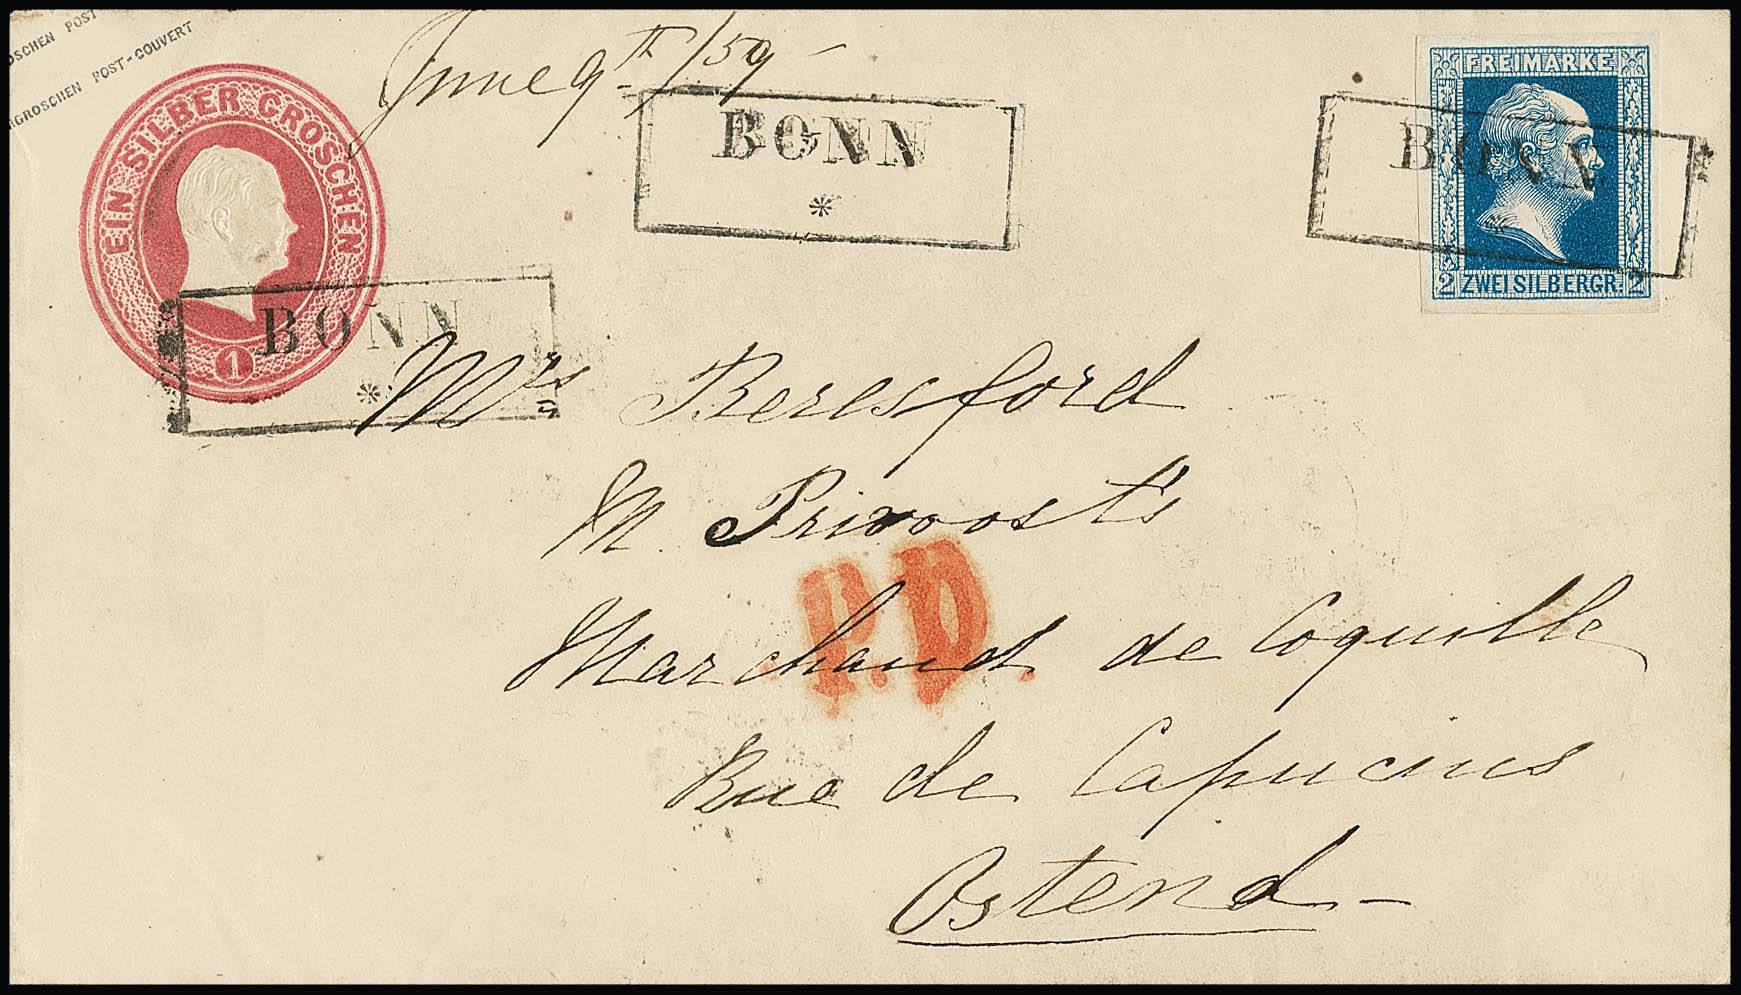 OSCHEN POST-
GROSCHEN POST-COUVERT
EIN SILBER GROSCHEN
1
June 9th /59
BONN
BONN
BONN
FREIMARKE
2 ZWEI SILBERGR. 2
Mrs Beresford
M. Privoost's
P.D.
Marchand de Coquille
Rue de Capucins
Ostend